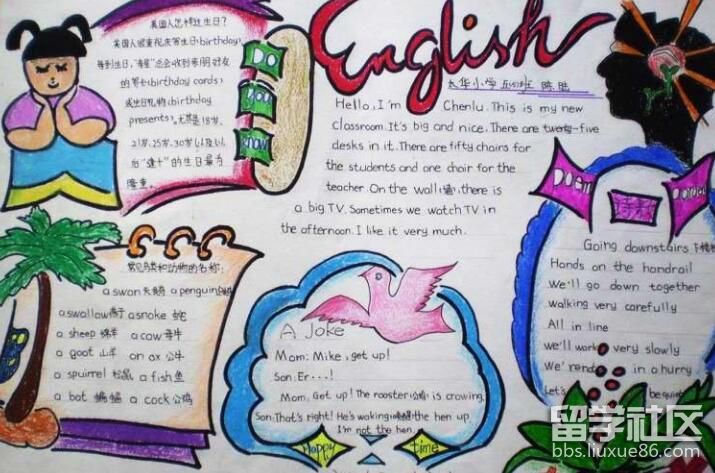 English
大华小学
美国人怎样过生日?
美国人很重视庆祝生日(birthday),
的贺卡(birthday cards),
或生日礼物(birthday
presents),尤其是18岁、
21岁、25岁、30岁以及以
的生日最为
隆重。
Do
you
know
Hello, I'm Chenlu. This is my new
classroom. It's big and nice. There are twenty-five
desks in it. There are fifty chairs for
the students and one chair for the
teacher. On the wall(墙), there is
a big TV. Sometimes we watch TV in
the afternoon. I like it very much.
常见鸟类和动物的名称:
a swan天鹅 a penguin企鹅
a swallow燕子 a snake 蛇
a sheep 绵羊 a cow 母牛
a goat 山羊 an ox 公牛
a squirrel 松鼠 a fish 鱼
a bat 蝙蝠 a cock 公鸡
A Joke
Mom: Mike, get up!
Son: Er...!
Mom: Get up! The rooster(公鸡) is crowing.
Son: That's right! He's waking the hen up.
I'm not the hen.
Happy time
Poem
诗歌
Going downstairs 下楼梯
Hands on the handrail
We'll go down together
walking very carefully
All in line
we'll walk very slowly
We' in a hurry
Let's be quiet
留学社区
bbs.liuxue86.com